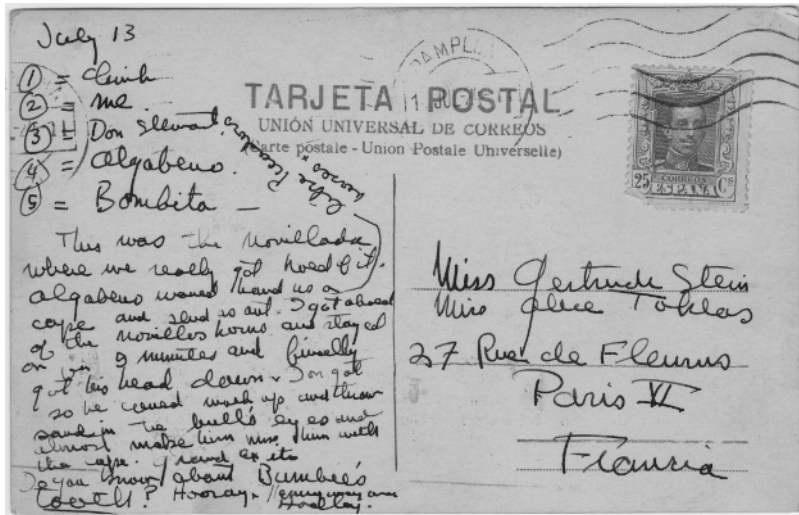 July 13
① = Chink
② = me.
③ = Don Stewart.
④ = Algabeno.
⑤ = Bombita —
like Picadors
horses
This was the novillada
where we really got hold of it.
Algabeno would hand us a
cape and send us out. I got ahead
of the novillos horns and stayed
on for 9 minutes and finally
got his head down. Don got
so he could walk up and throw
sand in the bull's eyes and
almost make him miss him with
the cape. Grand
Do you know about Bumbie's
tooth? Hooray. Hemingway and
Hadley.
PAMPL
TARJETA POSTAL
UNIÓN UNIVERSAL DE CORREOS
(Carte postale - Union Postale Universelle)
CORREOS
25 ESPAÑA Cs
Miss Gertrude Stein
Miss Alice Toklas
27 Rue de Fleurus
Paris VI
Francia